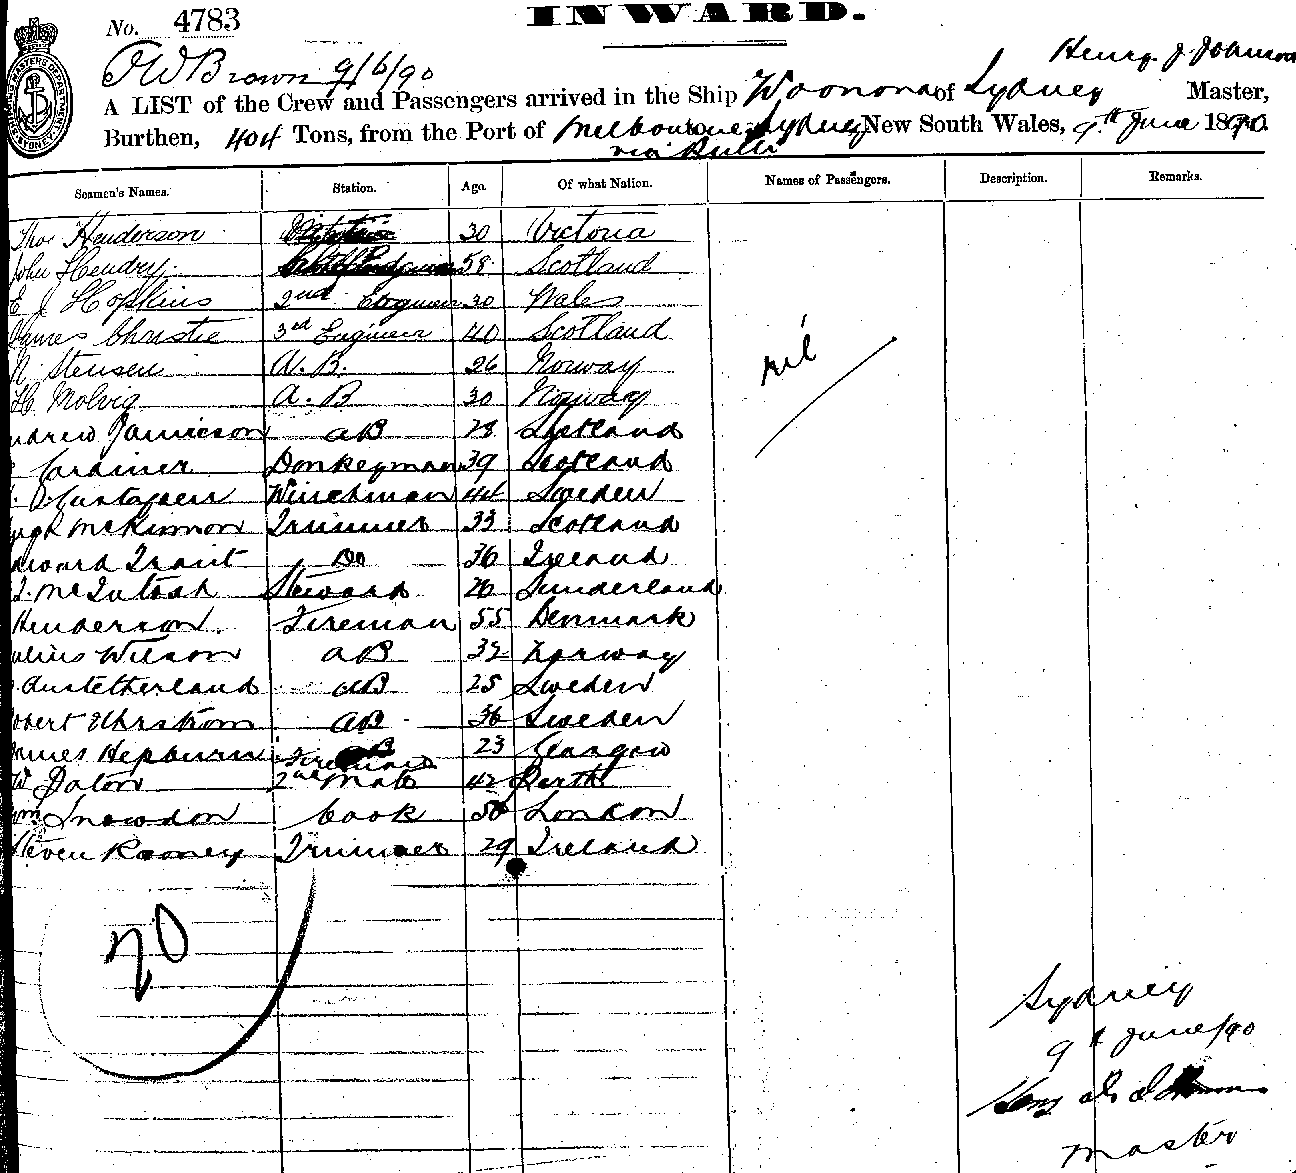 No. 4783
INWARD.
Henry J. Johnson
J W Brown 9/6/90
A LIST of the Crew and Passengers arrived in the Ship Woonona of Sydney Master,
Burthen, 404 Tons, from the Port of Melbourne Sydney New South Wales, 9th June 1890.
via Bulli
Seamen's Names. Station. Age. Of what Nation. Names of Passengers. Description. Remarks.
Thos Henderson 30 Victoria
John Hendry 58 Scotland
E J Hopkins 2nd Engineer 30 Wales
James Christie 3rd Engineer 40 Scotland
Stensen A. B. 26 Norway
H. Molvig A. B 30 Norway
ndrew Jamieson AB 28
Gardiner Donkeyman 39 Scotland
Gustafsen Winchman 44 Sweden
ugh McKinnon Trimmer 33 Scotland
dward Trant Do 36 Ireland
J. McIntosh Steward 26 Sunderland
Henderson Fireman 55 Denmark
ulius Wilson AB 32 Norway
AB 25 Sweden
obert Uhrstrom AB 36 Sweden
ames Hepburn Fireman 23 Glasgow
W Paton 2nd Mate 42 Perth
Wm Snowdon Cook 50 London
Steven Rooney Trimmer 29 Ireland
nil
20
Sydney
9th June/90
Henry J. Johnson
Master